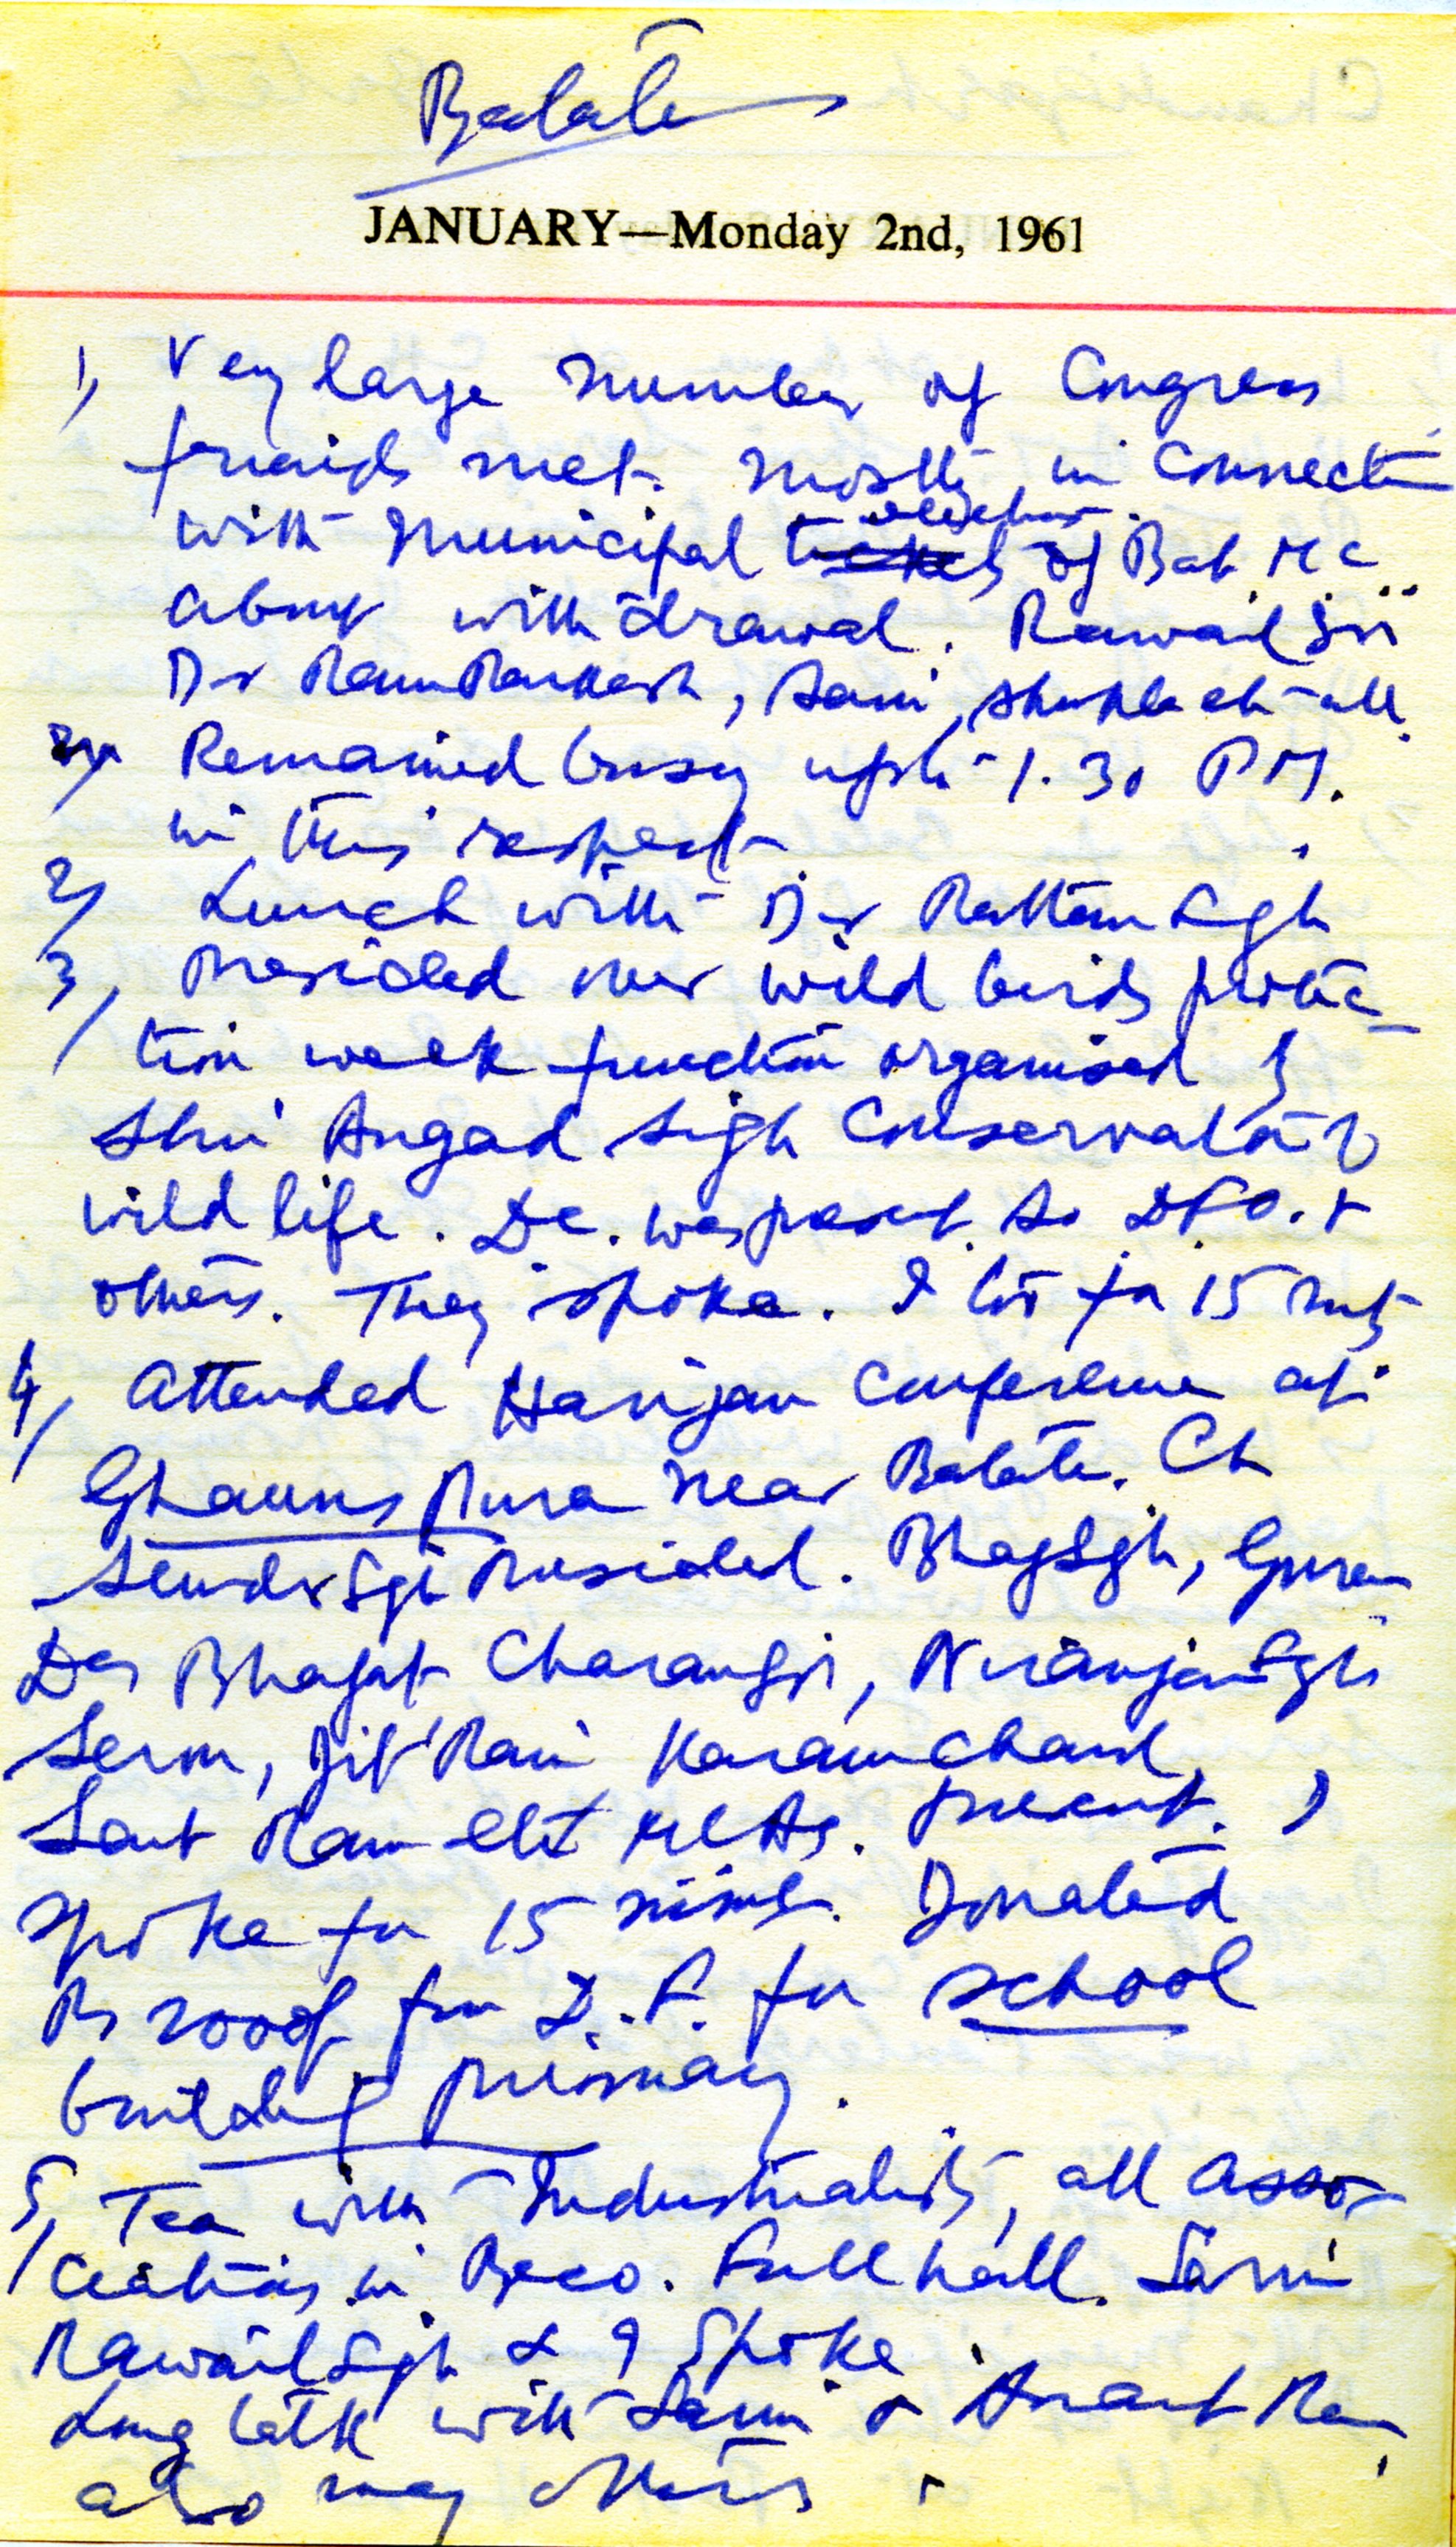 Batala
JANUARY—Monday 2nd, 1961
1, Very large number of Congress
friends met. Mostly in connection
with Municipal election of Bat M C
about withdrawal. Rawail Sri
Dr Ram Parkash, Sami,
Remained busy upto 1.30 P M.
in this respect
2, Lunch with Dr Rattan Sgh
3, Presided over wild birds protec-
tion week function organised by
Shri Angad Singh Conservator of
wild life. D.C. was present. So D.F.O. &
others. They spoke. I too for 15 mts
4, Attended Harijan Conference at
Ghauns Pura near Batala. Ch
Sunder Sgh Presided. Bhag Sgh, Guran
Das Bhagat Charan, Niranjan Sgh
Jit Ram Karam Chand,
Sant Ram etc MLAs. present. I
spoke for 15 mints. Donated
Rs 2000/- for D.F. for school
building primary.
5, Tea with Industrialists, all asso-
ciations in Beco. Full hall. Sami
Rawail Sigh & I spoke
Long talk with Sami & Anant Ram
also many others.